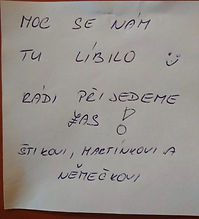 MOC SE NÁM
TU LÍBILO :)
RÁDI PŘIJEDEME
ZAS !
ŠTIKOVI, MARTÍNKOVI A
NĚMEČKOVI